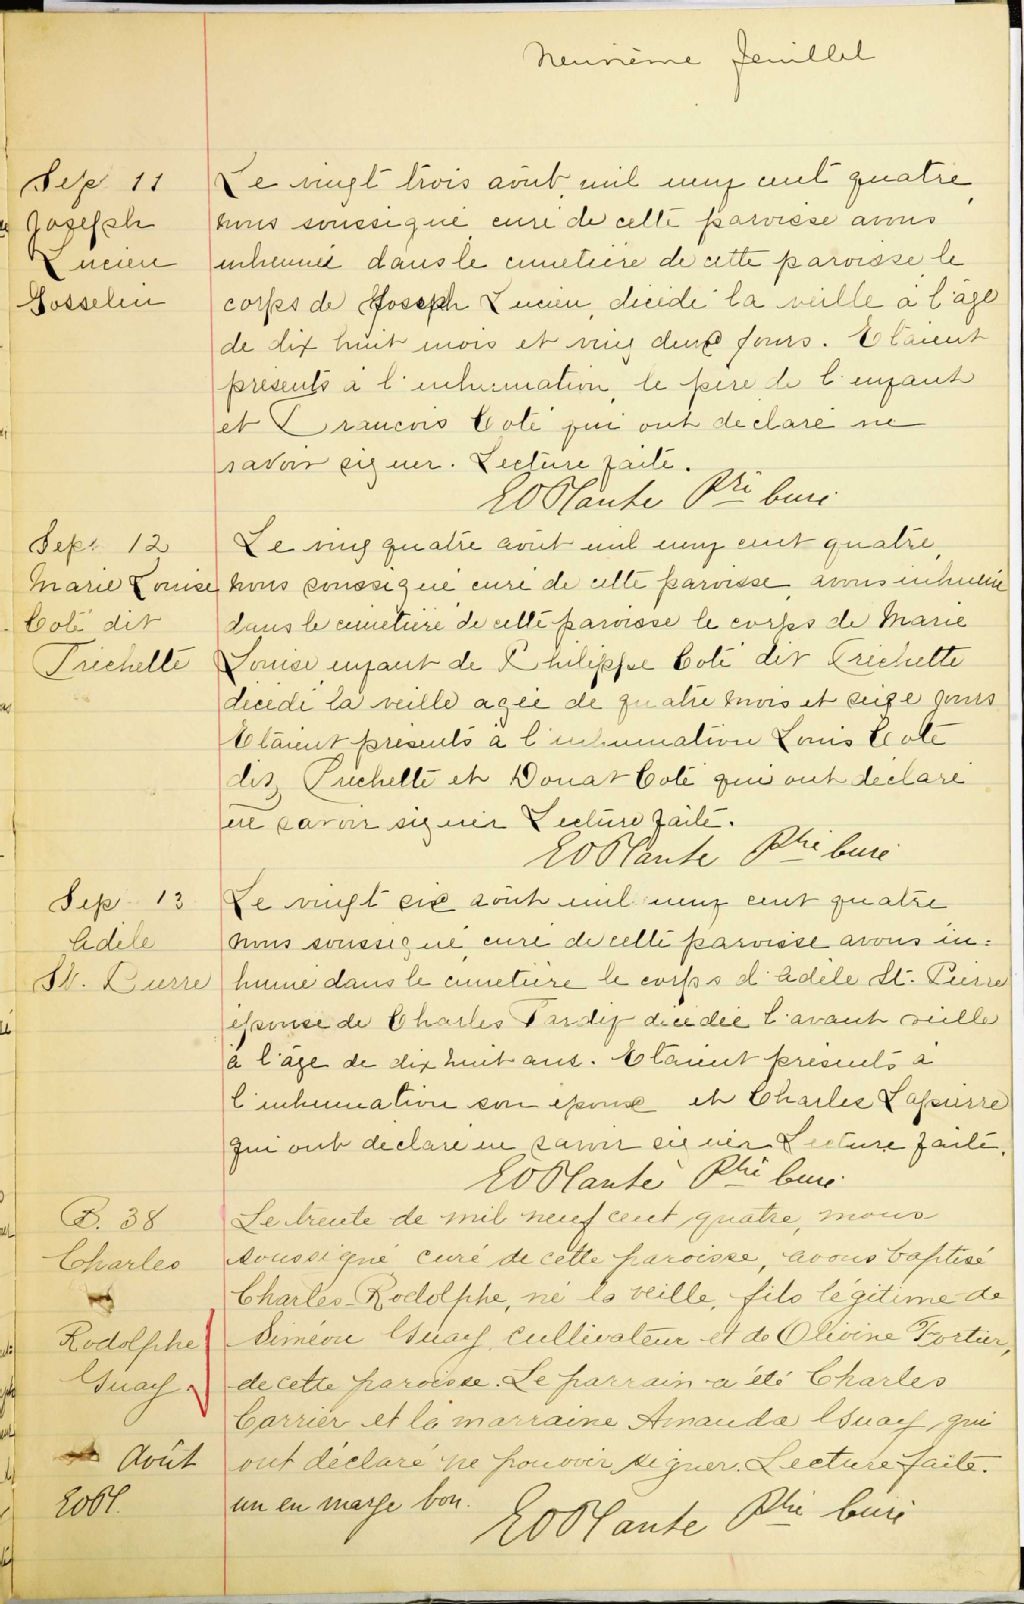 Neuvième feuillet
Sep 11
Joseph
Lucien
Gosselin
Le vingt trois août mil neuf cent quatre,
nous soussigné curé de cette paroisse avons
inhumé dans le cimetière de cette paroisse le
corps de Joseph Lucien, décédé la veille à l'âge
de dix huit mois et ving deux jours. Etaient
présents à l'inhumation, le père de l'enfant
et Francois Coté qui ont déclaré ne
savoir signer. Lecture faite.
EOPlante Ptre Curé
Sept 12
Marie Louise
Coté dit
Frichette
Le ving quatre août mil neuf cent quatre,
nous soussigné curé de cette paroisse, avons inhumé
dans le cimetière de cette paroisse le corps de Marie
Louise, enfant de Philippe Coté dit Frichette
décédé la veille agée de quatre mois et seize jours
Etaient présents à l'inhumation Louis Coté
dit Frichette et Donat Coté qui ont déclaré
ne savoir signer Lecture faite.
EOPlante Ptre Curé
Sep 13
Adèle
St. Pierre
Le vingt six août mil neuf cent quatre
nous soussigné, curé de cette paroisse avons in=
humé dans le cimetière le corps d'Adèle St. Pierre
épouse de Charles Tardif décédée l'avant veille
à l'âge de dix huit ans. Etaient présents à
l'inhumation son époux et Charles Lapierre
qui ont déclaré ne savoir signer. Lecture faite.
EOPlante Ptre Curé
B. 38
Charles
Rodolphe
Guay
Août
EOPl.
Le trente de mil neuf cent quatre, nous
soussigné curé de cette paroisse, avons baptisé
Charles-Rodolphe, né la veille, fils légitime de
Siméon Guay, cultivateur et de Olivine Fortier,
de cette paroisse. Le parrain a été Charles
Carrier et la marraine Amanda Guay, qui
ont déclaré ne pouvoir signer. Lecture faite.
un en marge bon.
EOPlante Ptre Curé